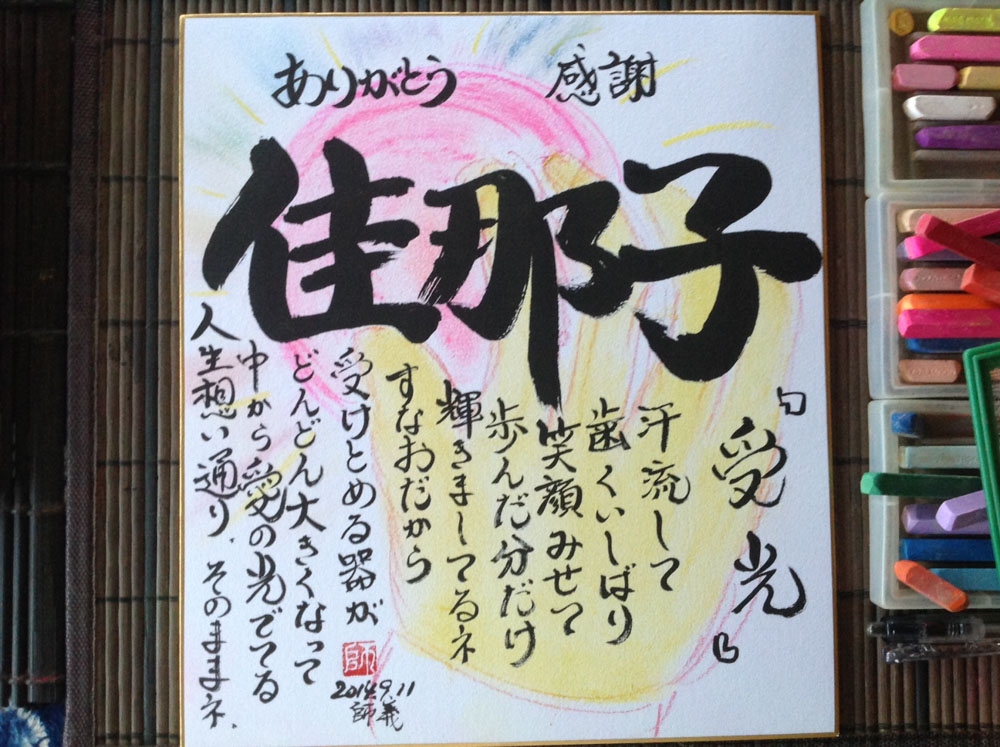 ありがとう 感謝
佳那子
「受光」
汗流して
歯くいしばり
笑顔みせて
歩んだ分だけ
輝きましてるネ
すなおだから
受けとめる器が
どんどん大きくなって
中から愛の光でてる
人生想い通り、そのままネ、
師
2014.9.11
師義